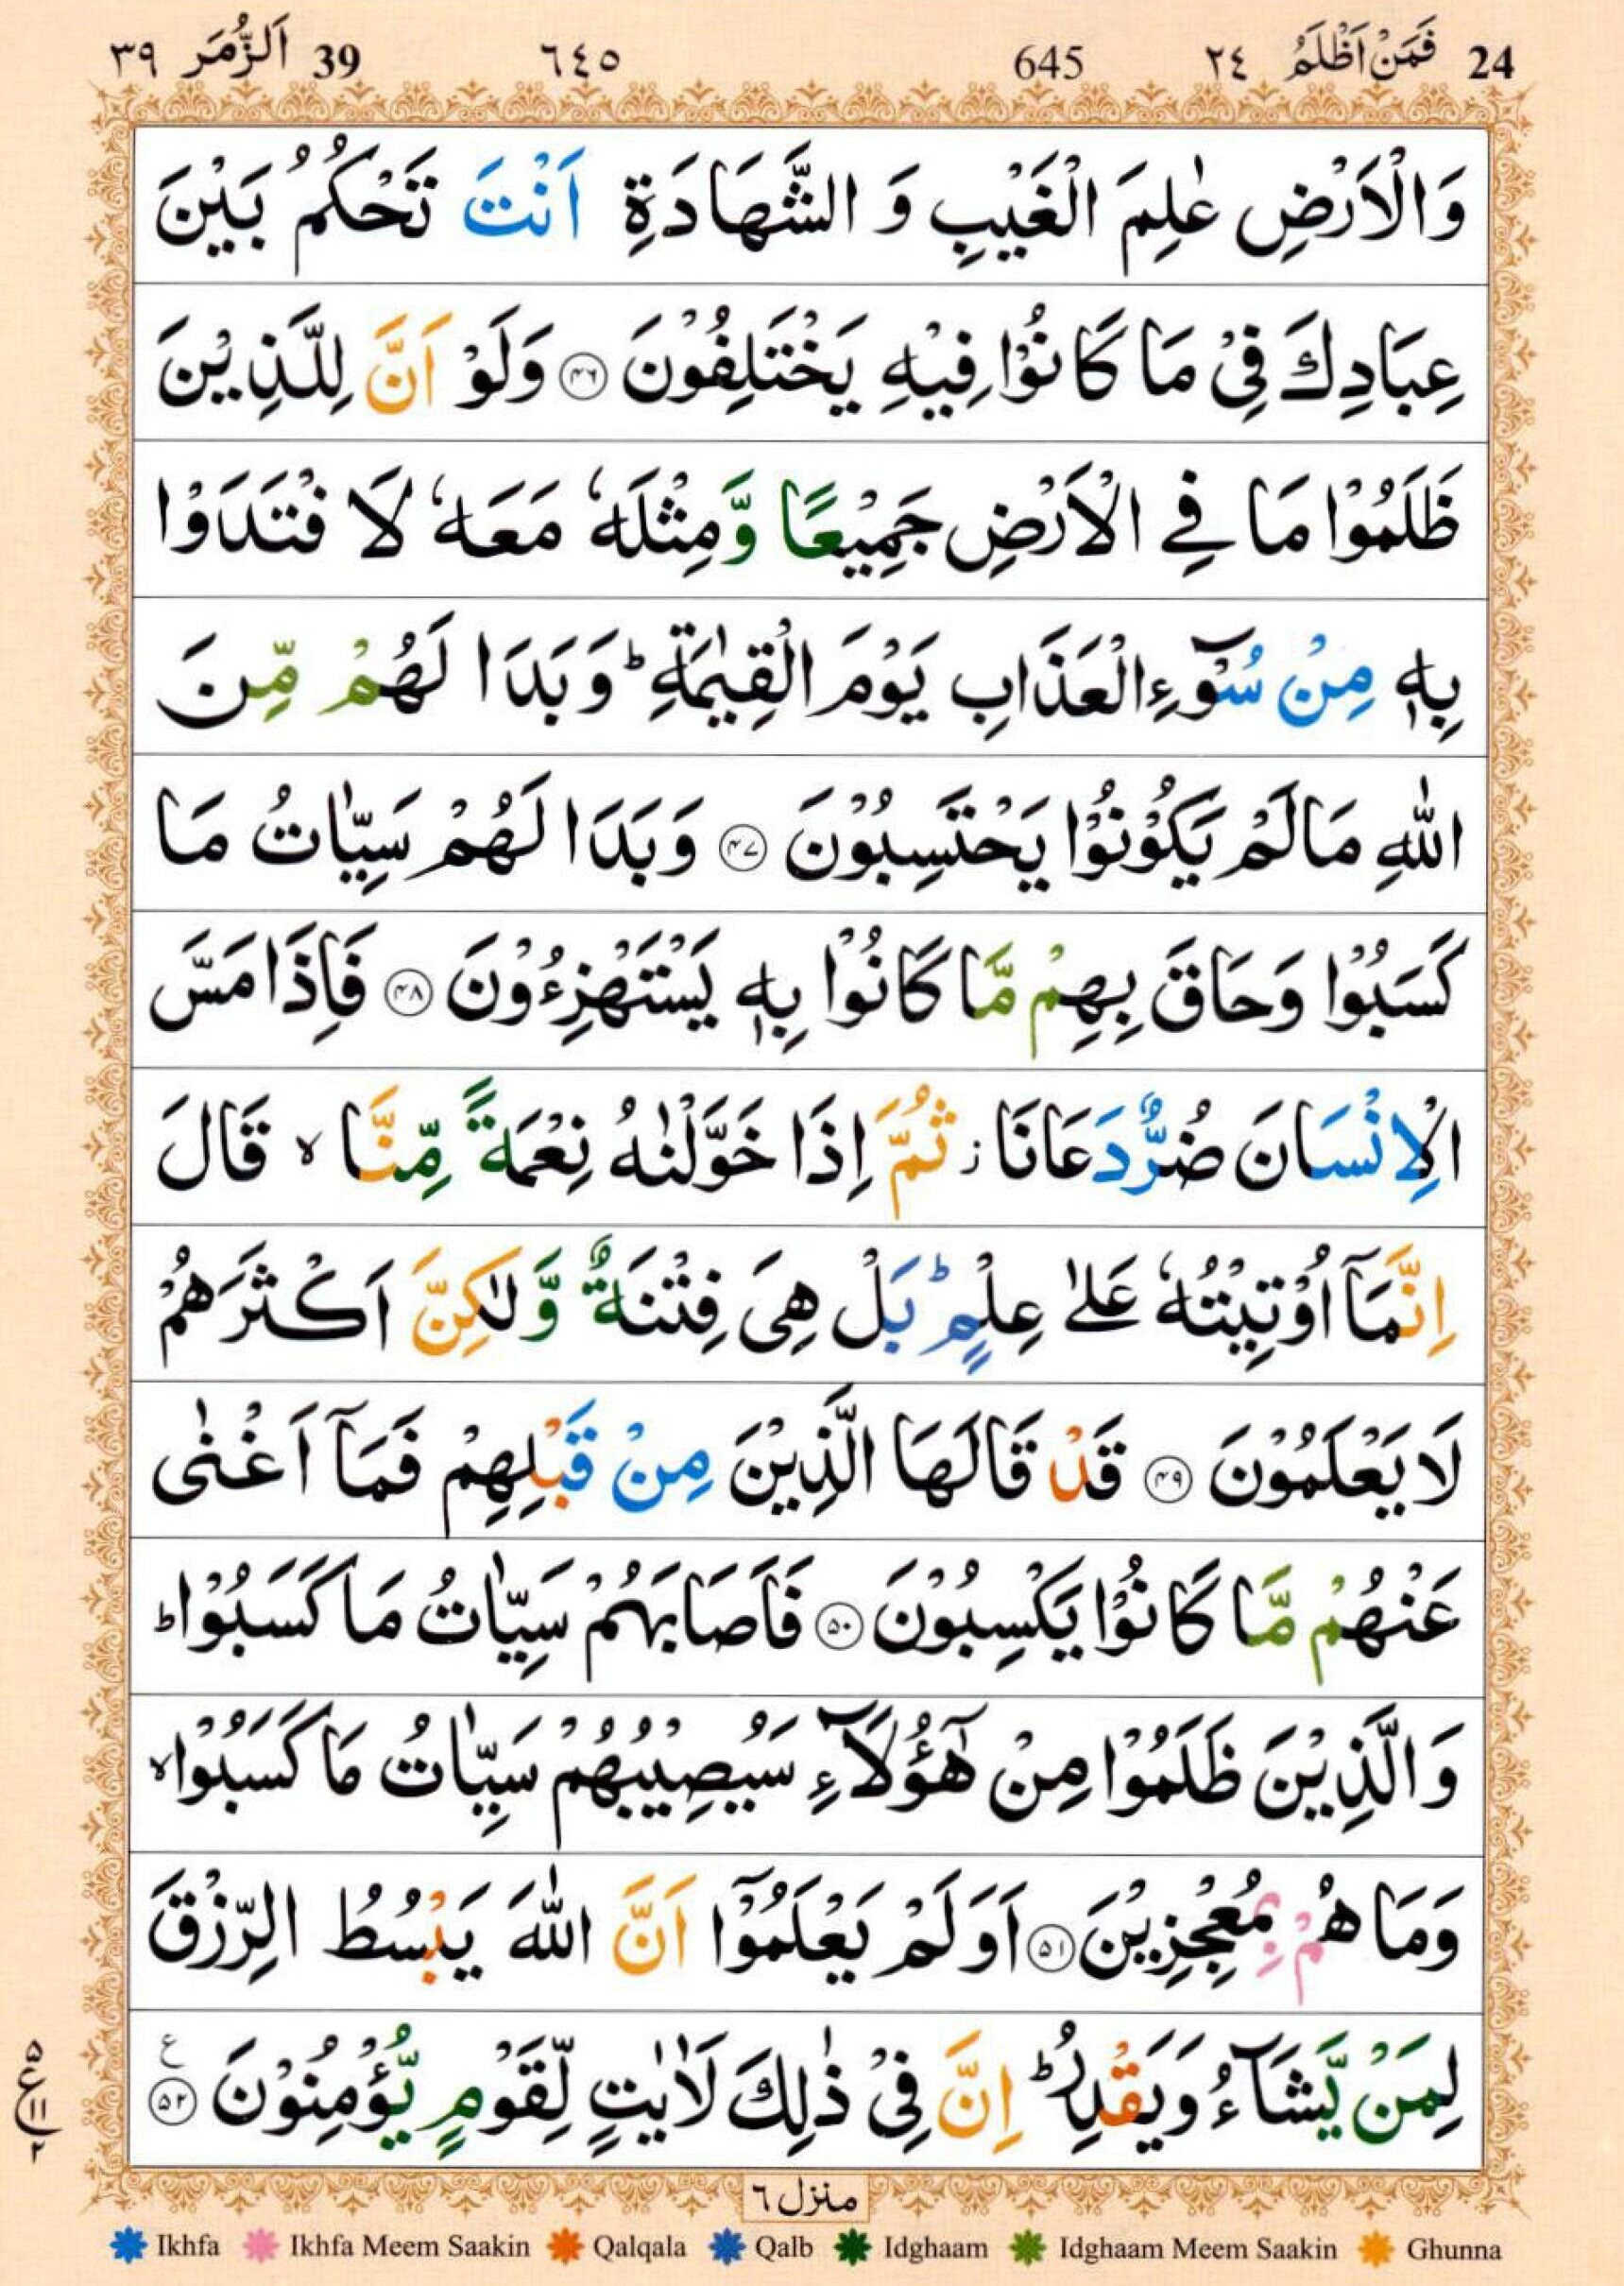 24 فَمَنْ اَظْلَمُ ٢٤ 645 ٦٤٥ 39 اَلزُّمَر ٣٩
وَالْاَرْضِ عٰلِمَ الْغَيْبِ وَ الشَّهَادَةِ اَنْتَ تَحْكُمُ بَيْنَ
عِبَادِكَ فِيْ مَا كَانُوْا فِيْهِ يَخْتَلِفُوْنَ ۴۶ وَلَوْ اَنَّ لِلَّذِيْنَ
ظَلَمُوْا مَا فِي الْاَرْضِ جَمِيْعًا وَّمِثْلَهٗ مَعَهٗ لَا فْتَدَوْا
بِهٖ مِنْ سُوْٓءِ الْعَذَابِ يَوْمَ الْقِيٰمَةِ ؕ وَبَدَا لَهُمْ مِّنَ
اللّٰهِ مَا لَمْ يَكُوْنُوْا يَحْتَسِبُوْنَ ۴۷ وَبَدَا لَهُمْ سَيِّاٰتُ مَا
كَسَبُوْا وَحَاقَ بِهِمْ مَّا كَانُوْا بِهٖ يَسْتَهْزِءُوْنَ ۴۸ فَاِذَا مَسَّ
الْاِنْسَانَ ضُرٌّ دَعَانَا ز ثُمَّ اِذَا خَوَّلْنٰهُ نِعْمَةً مِّنَّا ۙ قَالَ
اِنَّمَآ اُوْتِيْتُهٗ عَلٰى عِلْمٍ ؕ بَلْ هِيَ فِتْنَةٌ وَّلٰكِنَّ اَكْثَرَهُمْ
لَا يَعْلَمُوْنَ ۴۹ قَدْ قَالَهَا الَّذِيْنَ مِنْ قَبْلِهِمْ فَمَآ اَغْنٰى
عَنْهُمْ مَّا كَانُوْا يَكْسِبُوْنَ ۵۰ فَاَصَابَهُمْ سَيِّاٰتُ مَا كَسَبُوْا ؕ
وَالَّذِيْنَ ظَلَمُوْا مِنْ هٰٓؤُلَآءِ سَيُصِيْبُهُمْ سَيِّاٰتُ مَا كَسَبُوْا ۙ
وَمَا هُمْ بِمُعْجِزِيْنَ ۵۱ اَوَلَمْ يَعْلَمُوْٓا اَنَّ اللّٰهَ يَبْسُطُ الرِّزْقَ
لِمَنْ يَّشَآءُ وَيَقْدِرُ ؕ اِنَّ فِيْ ذٰلِكَ لَاٰيٰتٍ لِّقَوْمٍ يُّؤْمِنُوْنَ ۵۲ ع
۵
ع
۱۱
۲
منزل ٦
Ikhfa Ikhfa Meem Saakin Qalqala Qalb Idghaam Idghaam Meem Saakin Ghunna